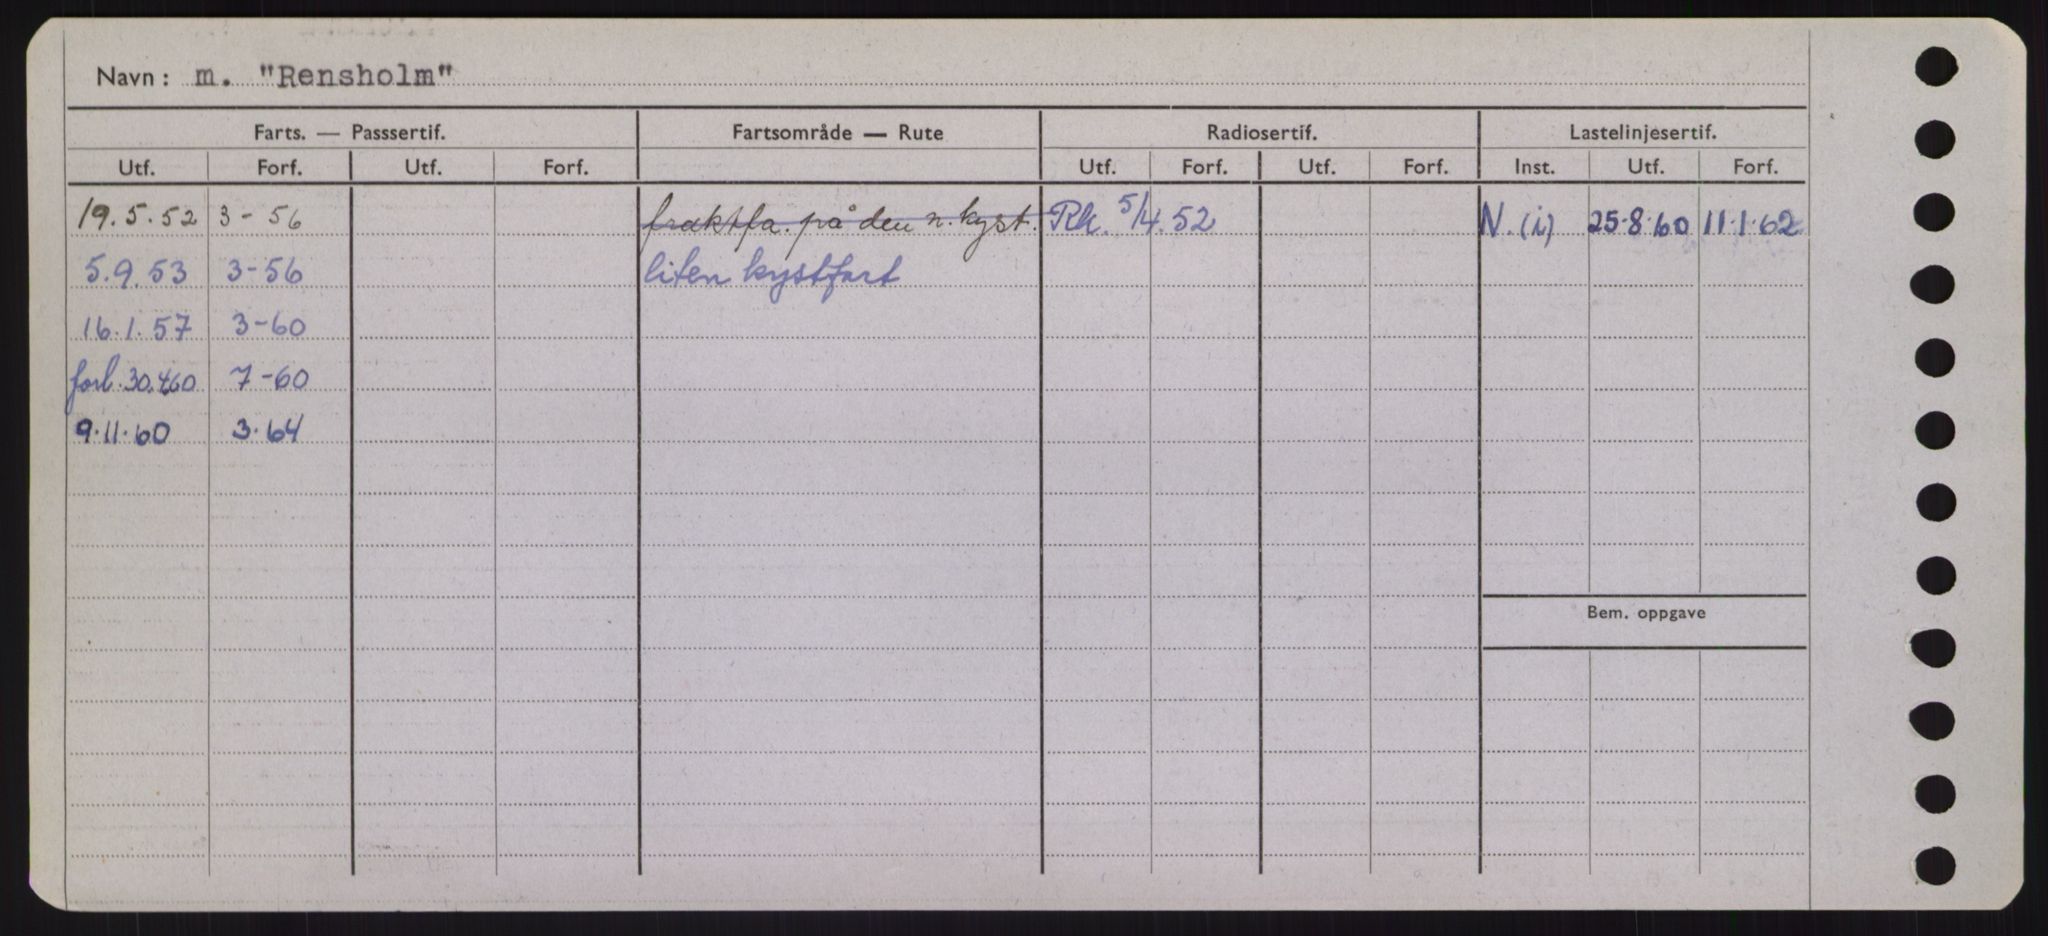 Navn: m. "Rensholm"
Farts. — Passsertif. Fartsområde — Rute Radiosertif. Lastelinjesertif.
Utf. Forf. Utf. Forf. Utf. Forf. Utf. Forf. Inst. Utf. Forf.
19.5.52 3-56 fraktfa. på den n. kyst. Rk. 5/4.52 N.(i) 25.8.60 11.1.62
5.9.53 3-56 liten kystfart
16.1.57 3-60
forl. 30.4.60 7-60
9.11.60 3.64
Bem. oppgave